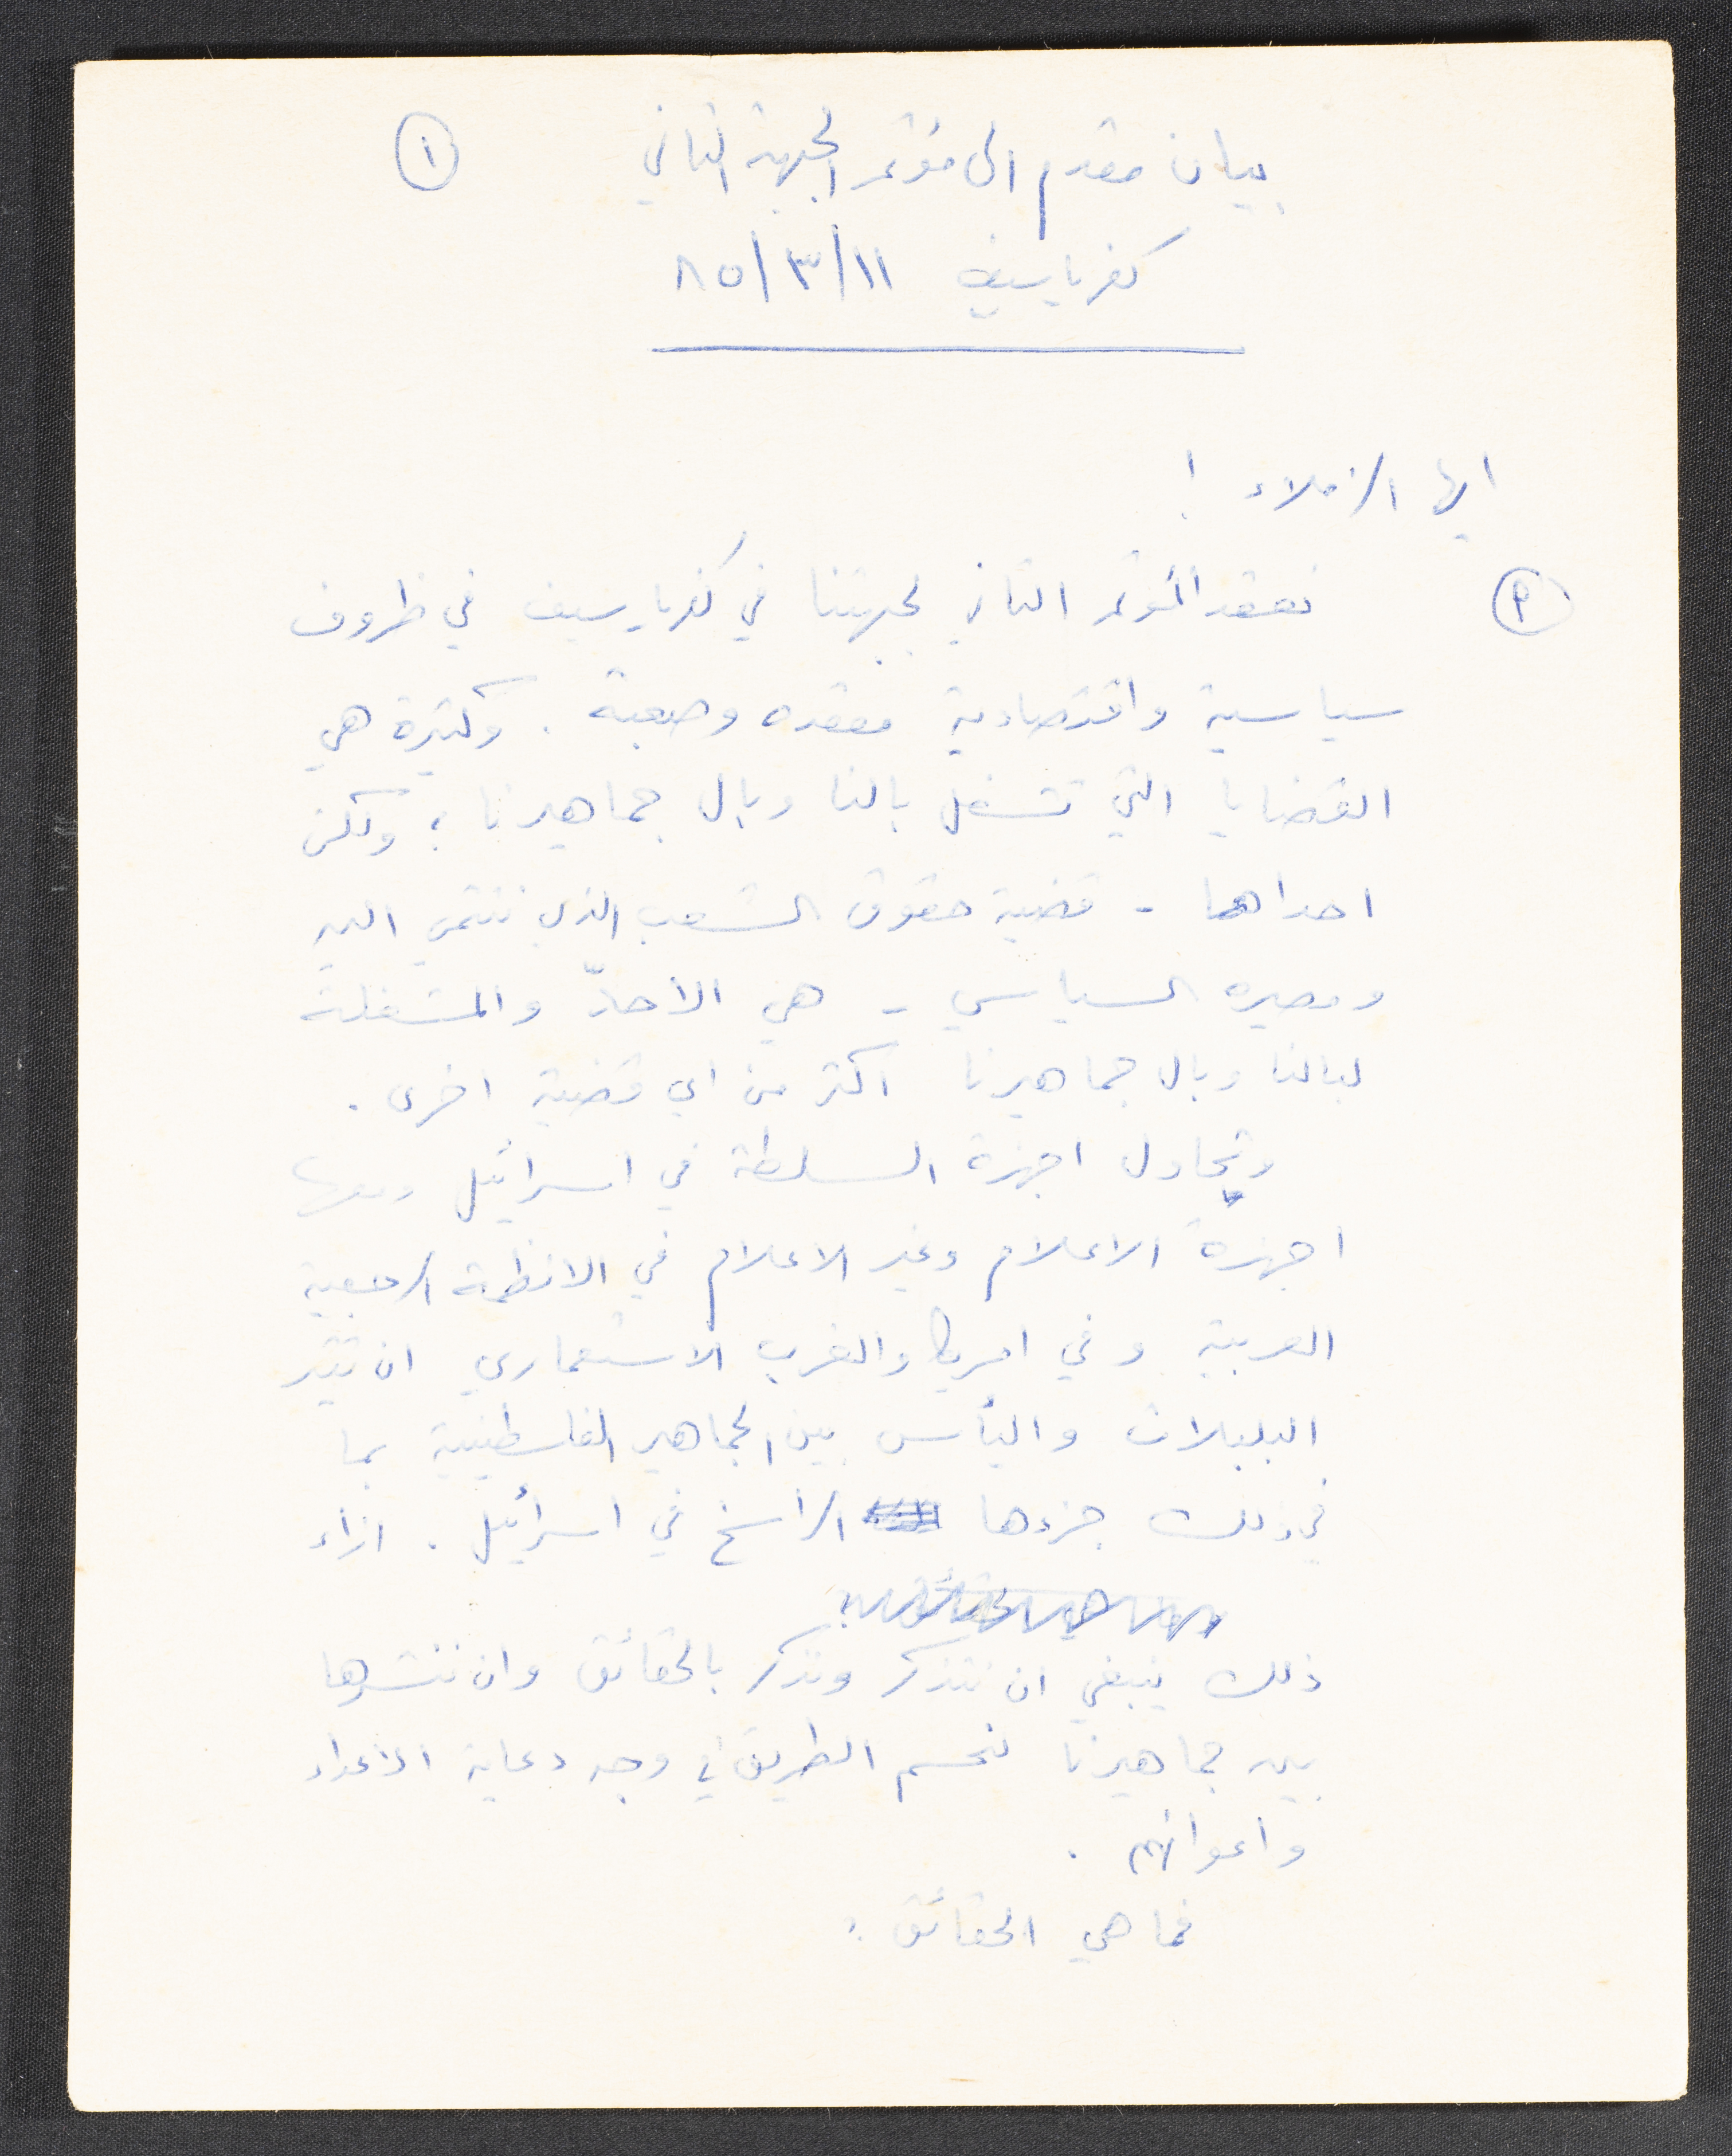 بيان مقدم الى مؤتمر الجبهة الثاني ①
كفرياسيف ١١/٣/٨٥
ايها الزملاء !
نعقد المؤتمر الثاني لجبهتنا في كفرياسيف في ظروف
سياسية واقتصادية معقده وصعبة . وكثيرة هي
القضايا التي تشغل بالنا وبال جماهيرنا ؛ ولكن
احداها - قضية حقوق الشعب الذي ننتمي اليه
ومصيره السياسي - هي الأحدّ والمشغلة
لبالنا وبال جماهيرنا اكثر من اي قضية اخرى .
وتحاول اجهزة السلطة في اسرائيل ومعها
اجهزة الاعلام وغير الاعلام في الانظمة الرجعية
العربية وفي امريكا والغرب الاستعماري ان تثير
البلبلات واليأس بين الجماهير الفلسطينية بما
في ذلك جزءها الراسخ في اسرائيل . ازاء
ذلك ينبغي ان نتذكر ونذكر بالحقائق وان ننشرها
بين جماهيرنا لحسم الطريق في وجه دعاية الاعداء
واعوانهم .
فما هي الحقائق :